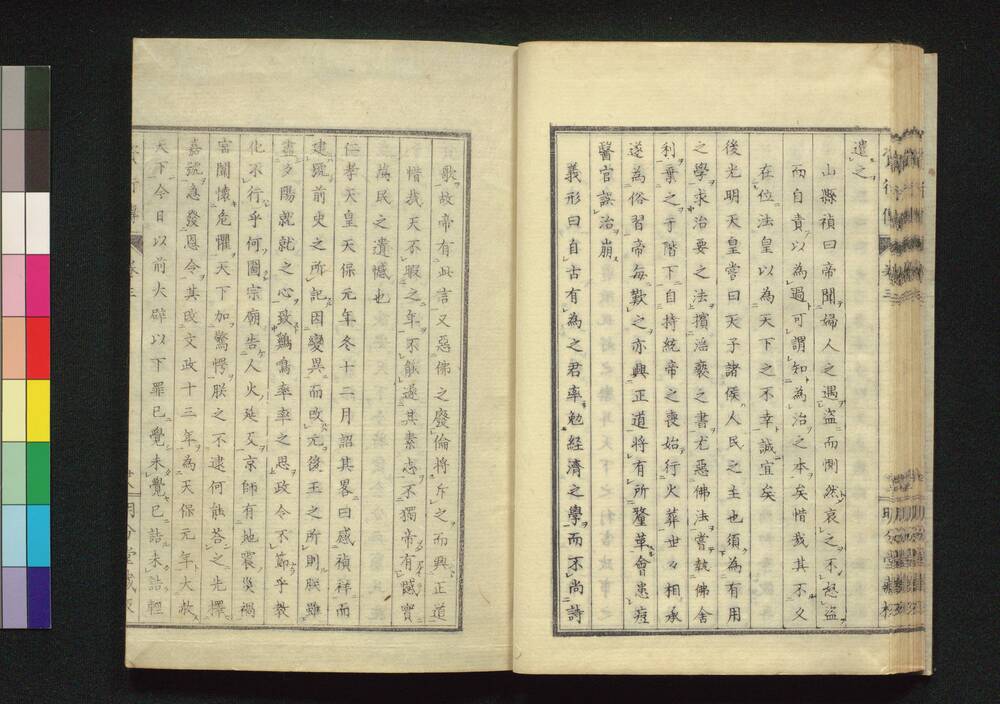 遣之
山縣禎曰帝聞婦人之遇盗而惻然哀之不怒盗
而自責以為過可謂知為治之本矣惜我其不久
在位法皇以為天下之不幸誠宜矣
後光明天皇嘗曰天子諸侯人民之主也須為有用
之學求治要之法擯淫褻之書尤惡佛法嘗執佛舎
利棄之于階下自持統帝之喪始行火葬世々相承
遂為俗習帝毎歎之亦興正道将有所釐革會患痘
醫官誤治崩
義形曰自古有為之君率勉経濟之學而不尚詩
歌故帝有此言又惡佛之廢倫将斥之而興正道
惜我天不暇之年不能遂其素志不獨帝有憾實
萬民之遺憾也
仁孝天皇天保元年冬十二月詔其畧曰感禎祥而
建號前史之所記因變異而改元後王之所則朕雖
盡夕陽就就之心致鷄鳴率率之思政令不節乎教
化不行乎何圖宗廟告人火延災京師有地震災禍
宮闈懐危懼天下加驚愕朕之不逮何能荅之先擇
嘉號急發恩令其改文政十三年為天保元年大赦
天下今日以前大辟以下罪已覺未覺已詰未詰輕